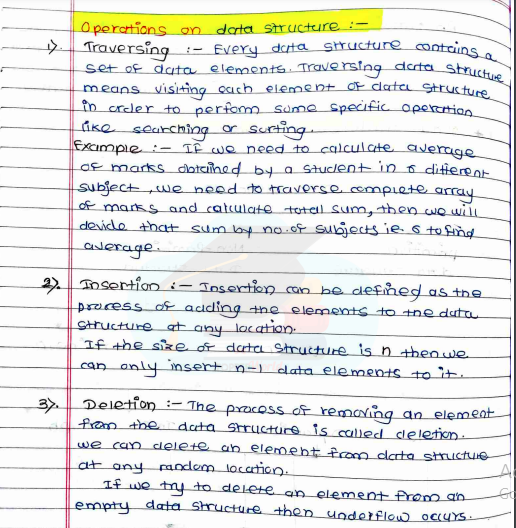 Operations on data structure :-
1). Traversing :- Every data structure contains a
set of data elements. Traversing data structure
means visiting each element of data structure
in order to perform some specific operation
like searching or sorting.
Example :- If we need to calculate average
of marks obtained by a student in 6 different
subject, we need to traverse complete array
of marks and calculate total sum, then we will
devide that sum by no. of subjects i.e. 6 to find
average.
2). Insertion :- Insertion can be defined as the
process of adding the elements to the data
structure at any location.
If the size of data structure is n then we
can only insert n-1 data elements to it.
3). Deletion :- The process of removing an element
from the data structure is called deletion.
we can delete an element from data structure
at any random location.
If we try to delete an element from an
empty data structure then underflow occurs.